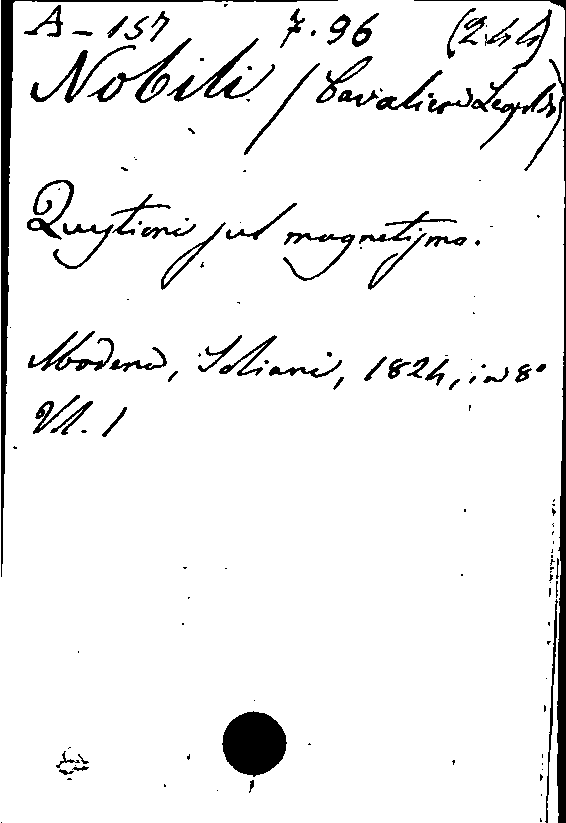 A - 157 7.96 (244)
Nobili (Cavaliere Leopoldo)
Questioni sul magnetismo.
Modena, Soliani, 1824, in 8°
Vol. 1